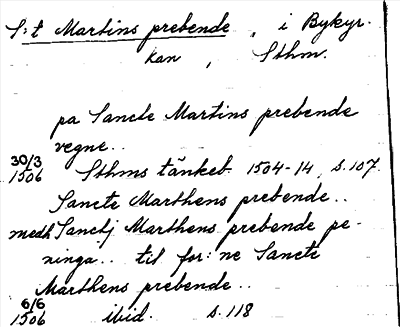 S:t Martins prebende, i Bykyr-
kan, Sthm.
pa Sancte Martins prebende
vegne..
30/3
1506 Sthms tänkeb. 1504-14, s. 107.
Sancte Marthens prebende..
medh Sanctj Marthens prebende pe-
ninga.. til for:ne Sancte
Marthens prebende..
6/6
1506 ibid. s. 118